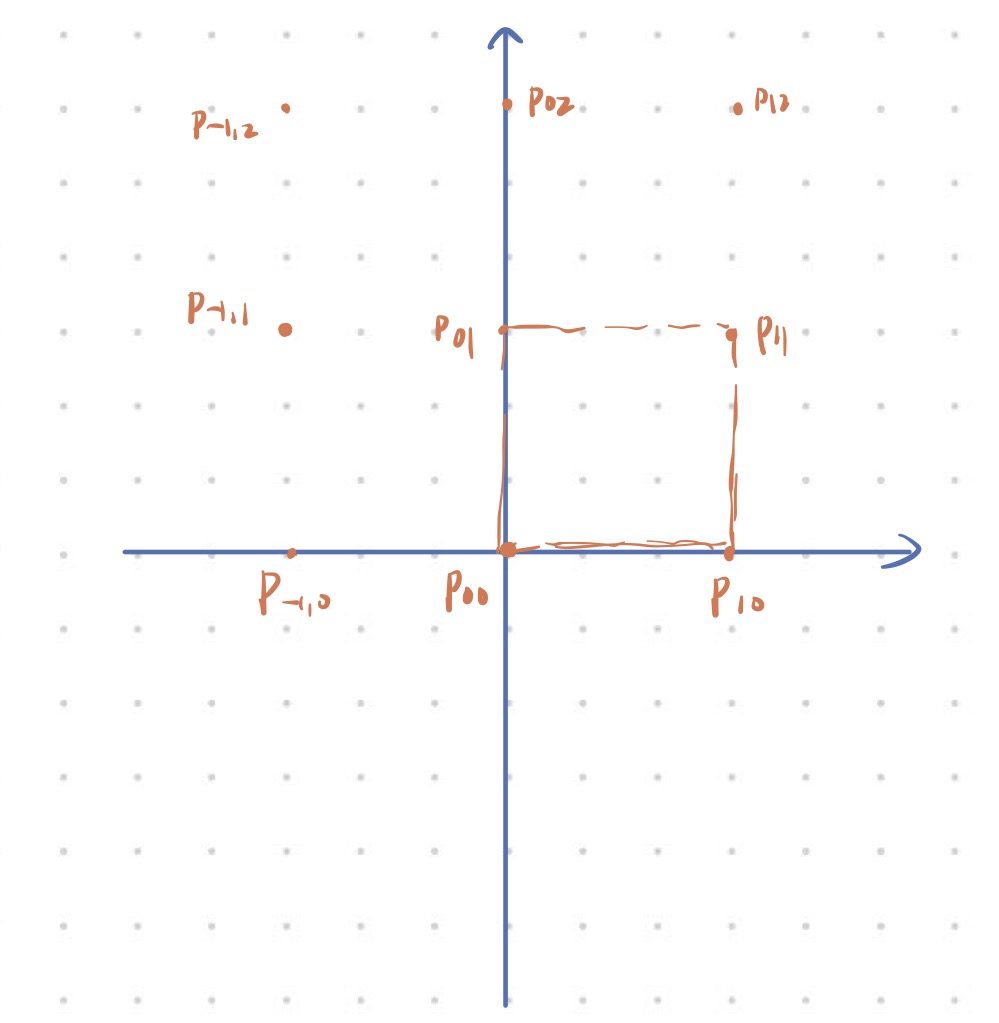 P02
P12
P-1,2
P-1,1
P01
P11
P-1,0
P00
P10